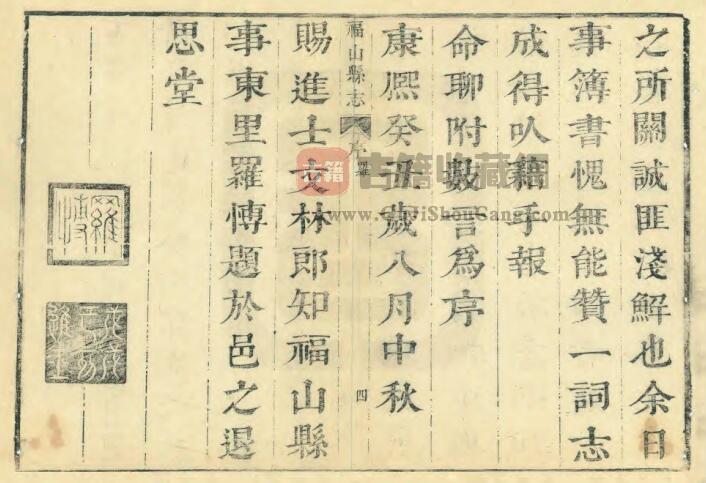 之所關誠匪淺觧也余日
事簿書愧無能贊一詞志
成得㕥藉手報
命聊附數言爲序
康熈癸丑歲八月中秋
福山縣志 序 羅 四
賜進士文林郎知福山縣
事東里羅愽題於邑之退
思堂
古籍收藏网
www.GuJiShouCang.com
古籍